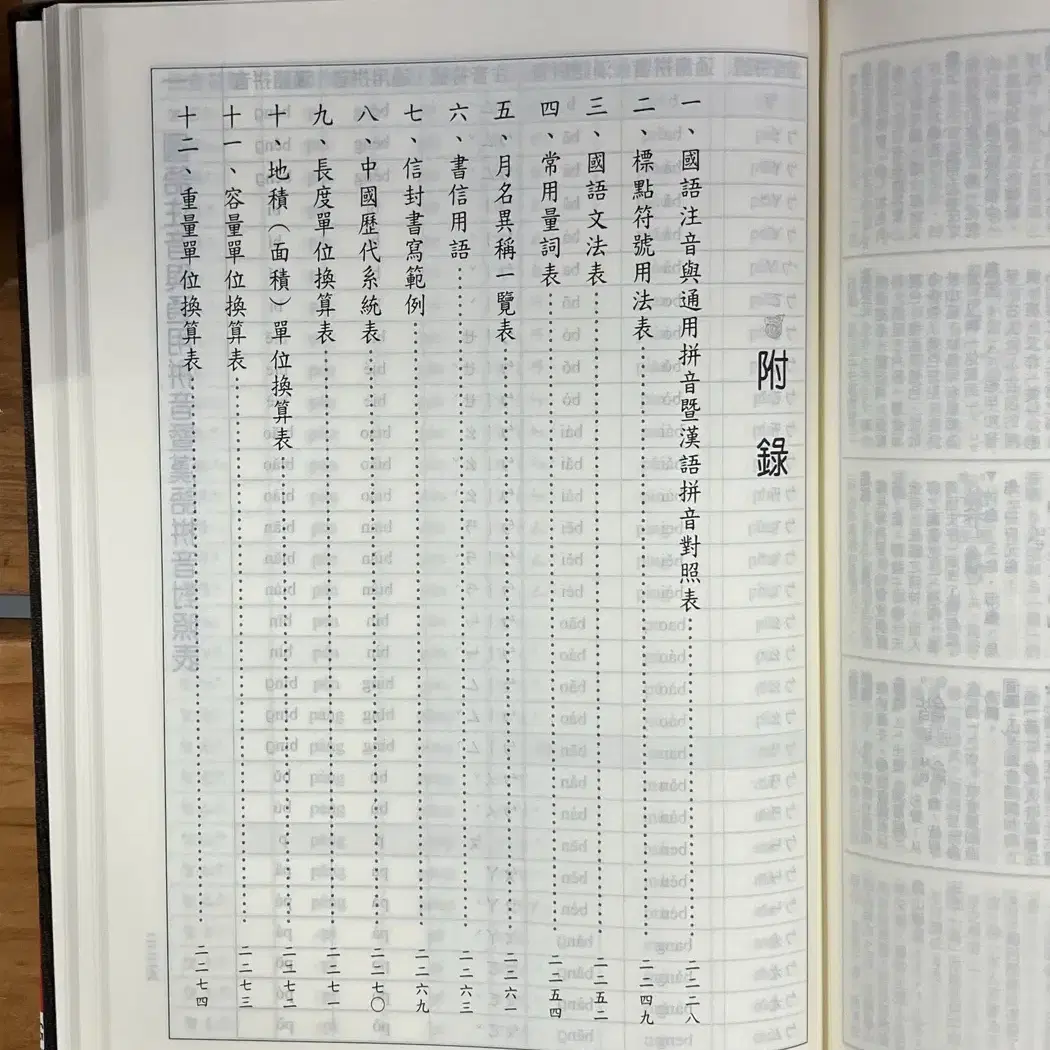 附錄
一、國語注音與通用拼音暨漢語拼音對照表……二二二八
二、標點符號用法表……二二四九
三、國語文法表……二二五二
四、常用量詞表……二二五四
五、月名異稱一覽表……二二六二
六、書信用語……二二六三
七、信封書寫範例……二二六九
八、中國歷代系統表……二二七〇
九、長度單位換算表……二二七一
十、地積（面積）單位換算表……二二七二
十一、容量單位換算表……二二七三
十二、重量單位換算表……二二七四